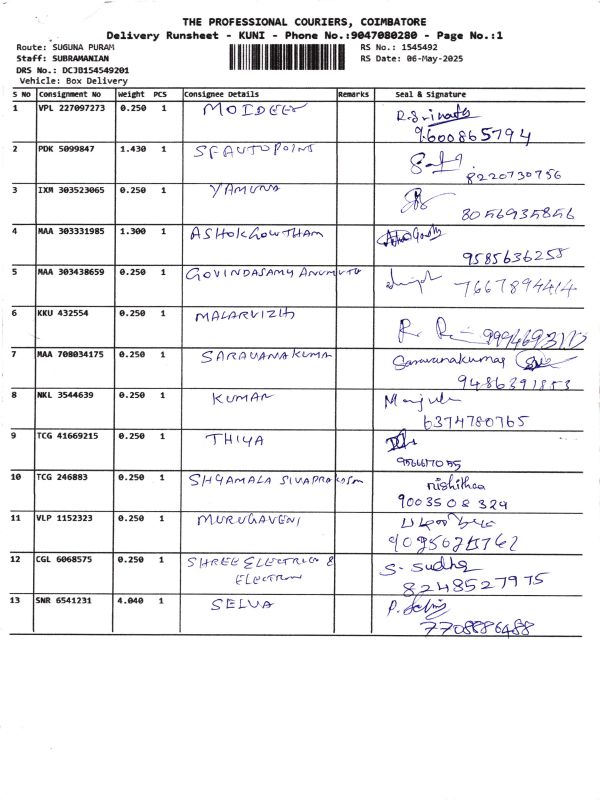 THE PROFESSIONAL COURIERS, COIMBATORE
Delivery Runsheet - KUNI - Phone No.:9047080280 - Page No.:1
Route: SUGUNA PURAM
RS No.: 1545492
Staff: SUBRAMANIAN
RS Date: 06-May-2025
DRS No.: DCJB154549201
Vehicle: Box Delivery
S No Consignment No Weight PCS Consignee Details Remarks Seal & Signature
1 VPL 227097273 0.250 1 MOIDEEN R.Srinath
9600865794
2 PDK 5099847 1.430 1 SFAUTOPOINT
8220730756
3 IXM 303523065 0.250 1 YAMUNA
8056935856
4 MAA 303331985 1.300 1 ASHOKGOWTHAM
9585636255
5 MAA 303438659 0.250 1 GOVINDASAMY
7667894414
6 KKU 432554 0.250 1 MALARVIZH
7 MAA 708034175 0.250 1 SARAVANAKUMA Saravanakumar
9486391853
8 NKL 3544639 0.250 1 KUMAR
6374780765
9 TCG 41669215 0.250 1 THIYA
10 TCG 246883 0.250 1 SHYAMALA SIVAPRAKASAM nishithaa
9003508329
11 VLP 1152323 0.250 1 MURUGAVENI
12 CGL 6068575 0.250 1 SHREE ELECTRICS & S. Sudha
ELECTRON
8248527975
13 SNR 6541231 4.040 1 SELVA
7708886488